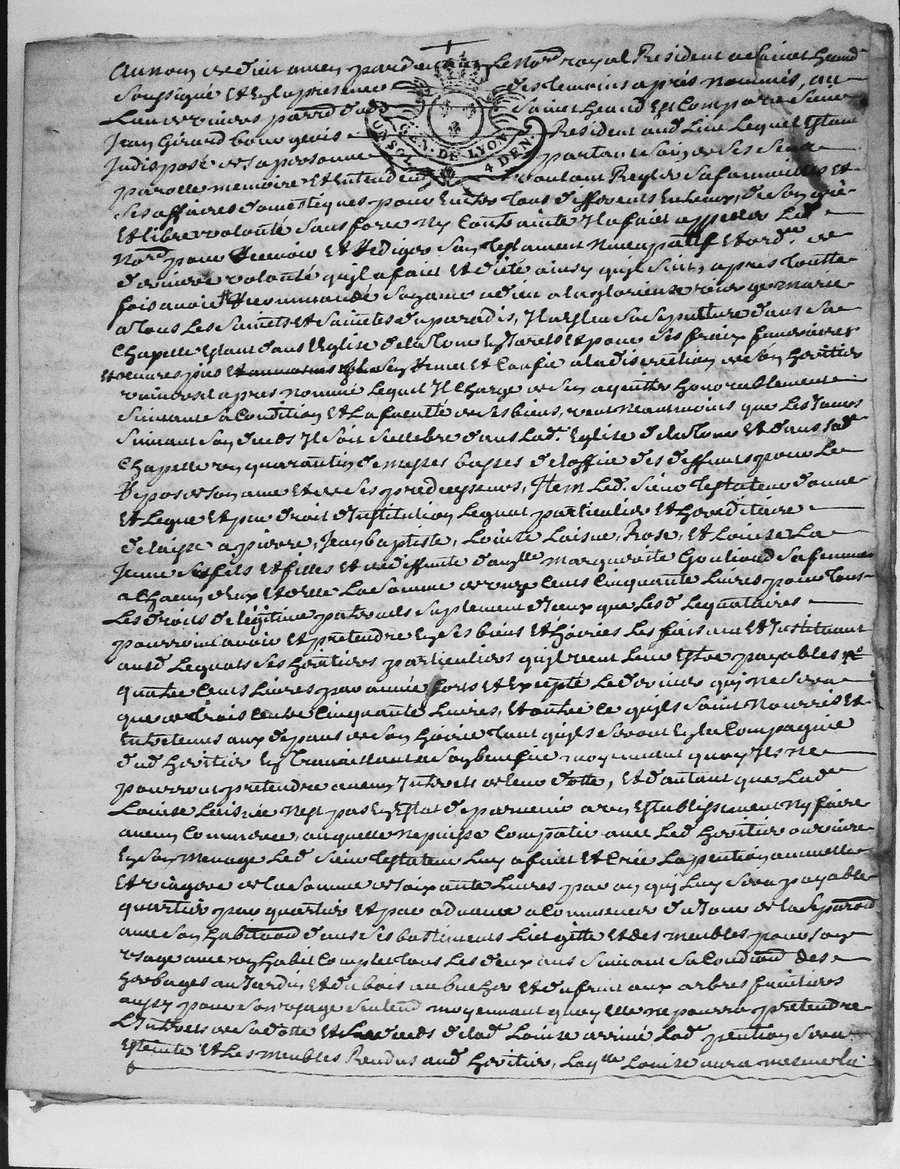 Au nom de dieu amen par devant le No.re royal Resident a Saint heand
Soussigné et En la presence des temoins apres nommés, au
Lieu de par.se dud Saint heand Est Comparu Sieur
Jean Girard bourgeois Resident aud Lieu Lequel Estant
Indisposé de Sa personne partant Sain de Ses Sens
parolle memoire et Entendement voulant Regler Sa famille et
Ses affaires domestiques pour Eviter tous differents Entr'eux, de Son gré
et libre volonté Sans force ny Contrainte Il a fait appeller Led
No.re pour Recevoir et Rediger Son Testament Nuncupatif et ord.ce de
derniere volonté quil a fait et dicté ainsy quil Suit, apres toutte
fois avoir Recommandé Son ame a dieu a la glorieuse vierge marie
a tous Les Saints et Saintes du paradis, Il a Elu Sa Sepulture dans Sa
Chapelle Estant dans L'Eglise de La Tour En Jarets et pour Ses fraix funeraires
et oeuvres pies Il Sen Remet et Confie a la discretion de Son heritier
universel apres nommé Lequel Il Charge de Sen aquitter honorablement
Suivant Sa Condition et La faculté de Ses biens, veut neanmoins que Les Jours
Suivant Son deceds Il Soit Cellebré dans Lad. Eglise de La Tour et dans Lad
Chapelle un quarantin de messes basses de L'office des deffunts pour Le
Repos de Son ame et de Ses predecesseurs, Item Led. Sieur Testateur donne
et Legue et par droit d'institution Legat particulier et hereditaire
delaisse a pierre, Jean baptiste, Louise Laisnée, Rose, et Louise La
Jeune Ses fils et filles et de deffunte dam.lle margueritte Goulioud Sa femme
a Chacun d'Eux et d'elle La Somme de onze Cents Cinquante Livres pour tous
Les droits de Légitime paternels Suplement d'iceux que Les d Legataires
pourroint avoir et pretendre En Ses biens et hoiries Les faisant et Instituant
aud Legats Ses heritiers particuliers quil veut Leur Estre payables
quatre Cents Livres par année fors et Excepté Le dernier qui ne Sera
que de trois Cents Cinquante Livres, et outre ce quils Soint Nourris et
Entretenus aux depans de Son hoirie tant quils Seront En la Compagnie
dud heritier En Travaillant a Son benefice moyennant quoy Ils ne
pourront pretendre aucun Interets de Leur dotte, et d'autant que Lad
Louise Laisnée n'est pas En Estat de parvenir a un Establissement Ny faire
aucun Commerce, au quelle ne puisse Compatir avec Led heritier a vivre
En Son menage Led Sieur Testateur Luy a fait et Créé La pention annuelle
et viagere de la Somme de Soixante Livres par an qui Luy Sera payable
quartier par quartier et par advance a Commencer du Jour de La Separaon
avec Son habitaon dans Ses battiments Lict gitte et des meubles pour Son
usage avec un habit Complet tous Les deux ans Suivant Sa Condiaon des
herbages au Jardin et du bois au bucher et du fruit aux arbres fruitiers
aussy pour Son usage Seulement moyennant quoy Elle ne pourra pretendre
L'Interets de Sa dotte et Led deceds de lad Louise arrivé Lad pention Sera
Eteinte et Les meubles Rendus aud heritier, Lay.lle Louise aura mesme la
GEN. DE LYON
4 DEN.